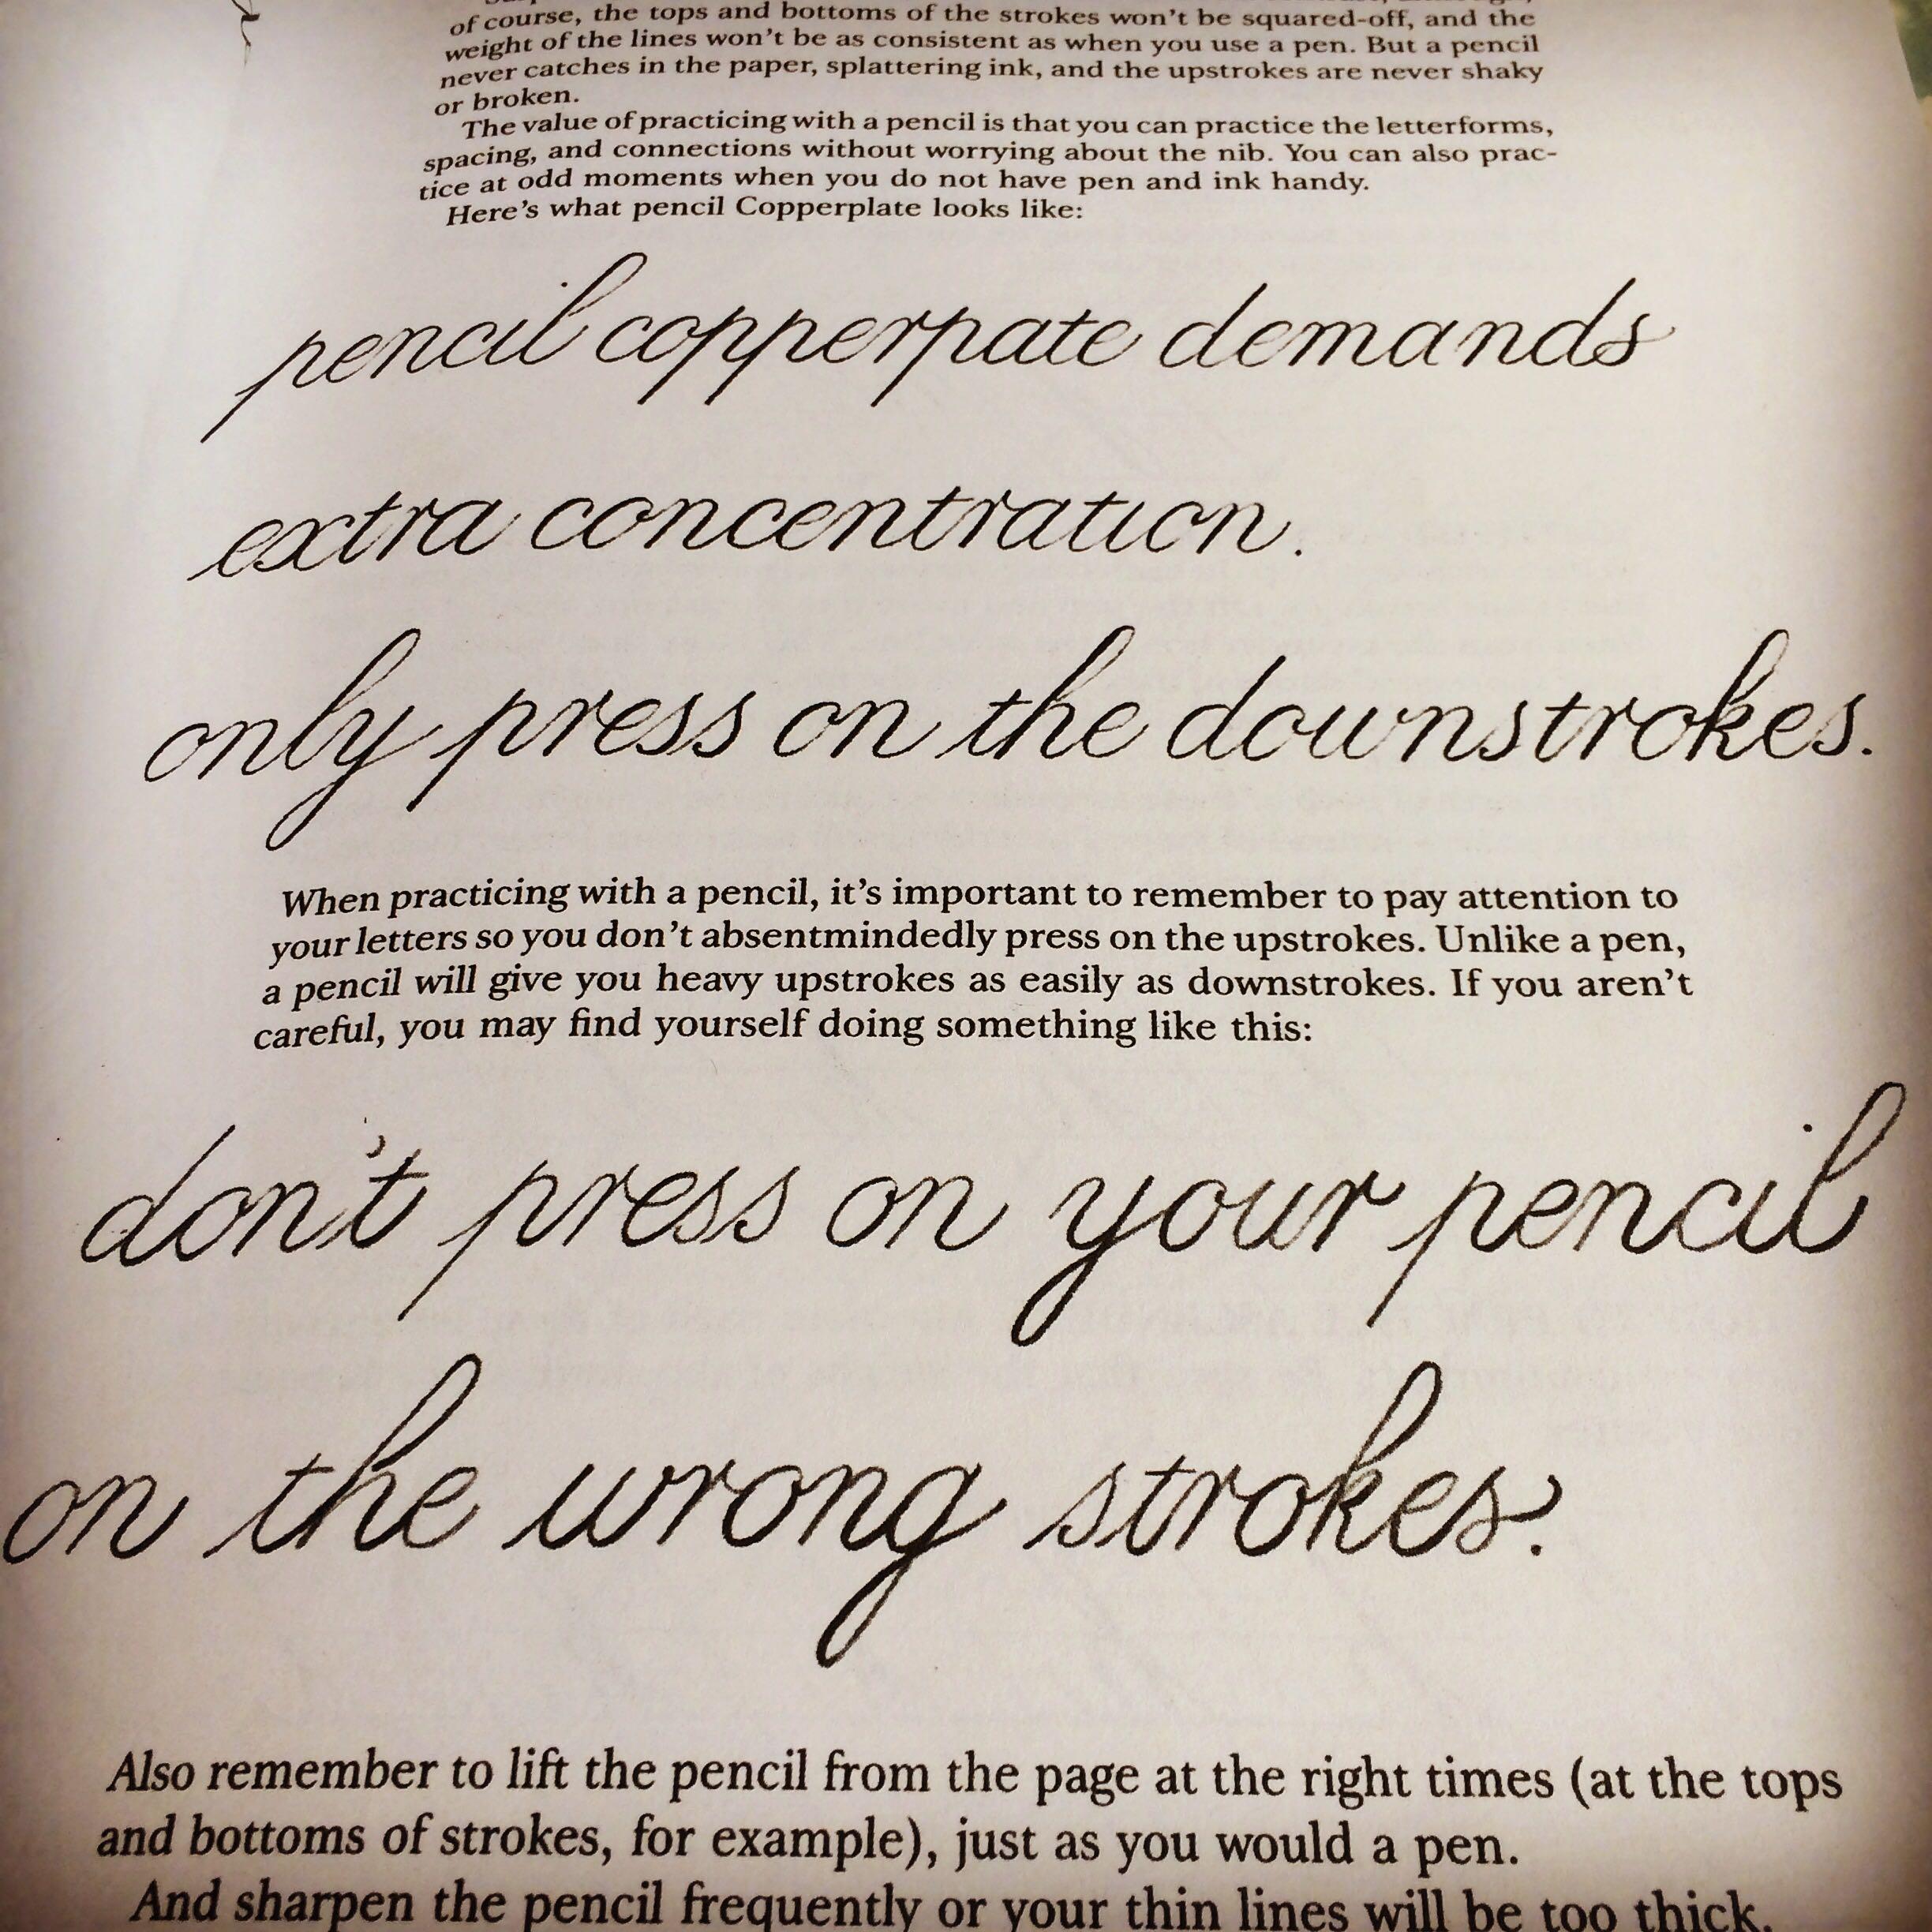 of course, the tops and bottoms of the strokes won't be squared-off, and the
weight of the lines won't be as consistent as when you use a pen. But a pencil
never catches in the paper, splattering ink, and the upstrokes are never shaky
or broken.
The value of practicing with a pencil is that you can practice the letterforms,
spacing, and connections without worrying about the nib. You can also prac-
tice at odd moments when you do not have pen and ink handy.
Here's what pencil Copperplate looks like:
pencil copperpate demands
extra concentration.
only press on the downstrokes.
When practicing with a pencil, it's important to remember to pay attention to
your letters so you don't absentmindedly press on the upstrokes. Unlike a pen,
a pencil will give you heavy upstrokes as easily as downstrokes. If you aren't
careful, you may find yourself doing something like this:
don't press on your pencil
on the wrong strokes.
Also remember to lift the pencil from the page at the right times (at the tops
and bottoms of strokes, for example), just as you would a pen.
And sharpen the pencil frequently or your thin lines will be too thick.